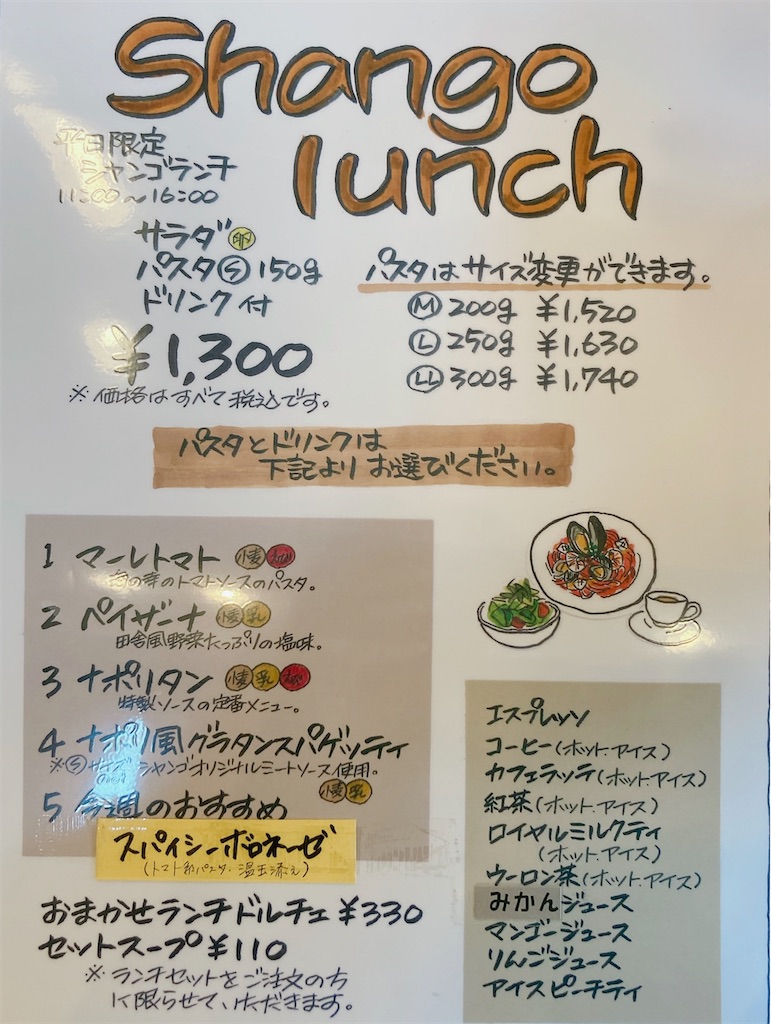 Shango
lunch
平日限定
シャンゴランチ
11:00～16:00
サラダ 卵
パスタ Ⓢ 150g
ドリンク付
¥1,300
※価格はすべて税込です。
パスタはサイズ変更ができます。
Ⓜ 200g ¥1,520
Ⓛ 250g ¥1,630
LL 300g ¥1,740
パスタとドリンクは
下記よりお選びください。
1 マーレトマト 小麦
のトマトソースのパスタ。
2 ペイザーナ 小麦 乳
田舎風野菜たっぷりの塩味。
3 ナポリタン 小麦 乳
特製ソースの定番メニュー。
4 ナポリ風グラタンスパゲッティ
※Ⓢサイズ シャンゴオリジナルミートソース使用。
小麦 乳
5 今週のおすすめ
スパイシーボロネーゼ
(トマト系パスタ・温玉添え)
おまかせランチドルチェ ¥330
セットスープ ¥110
※ランチセットをご注文の方
に限らせていただきます。
エスプレッソ
コーヒー(ホット.アイス)
カフェラッテ(ホット.アイス)
紅茶(ホット.アイス)
ロイヤルミルクティ
(ホット.アイス)
ウーロン茶(ホット.アイス)
みかんジュース
マンゴージュース
りんごジュース
アイスピーチティ